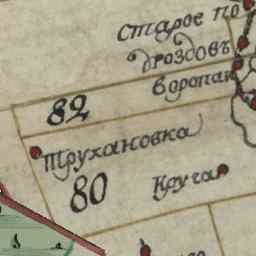 Старое по
дроздовъ
воропан
82
Трухановка
80 Круча